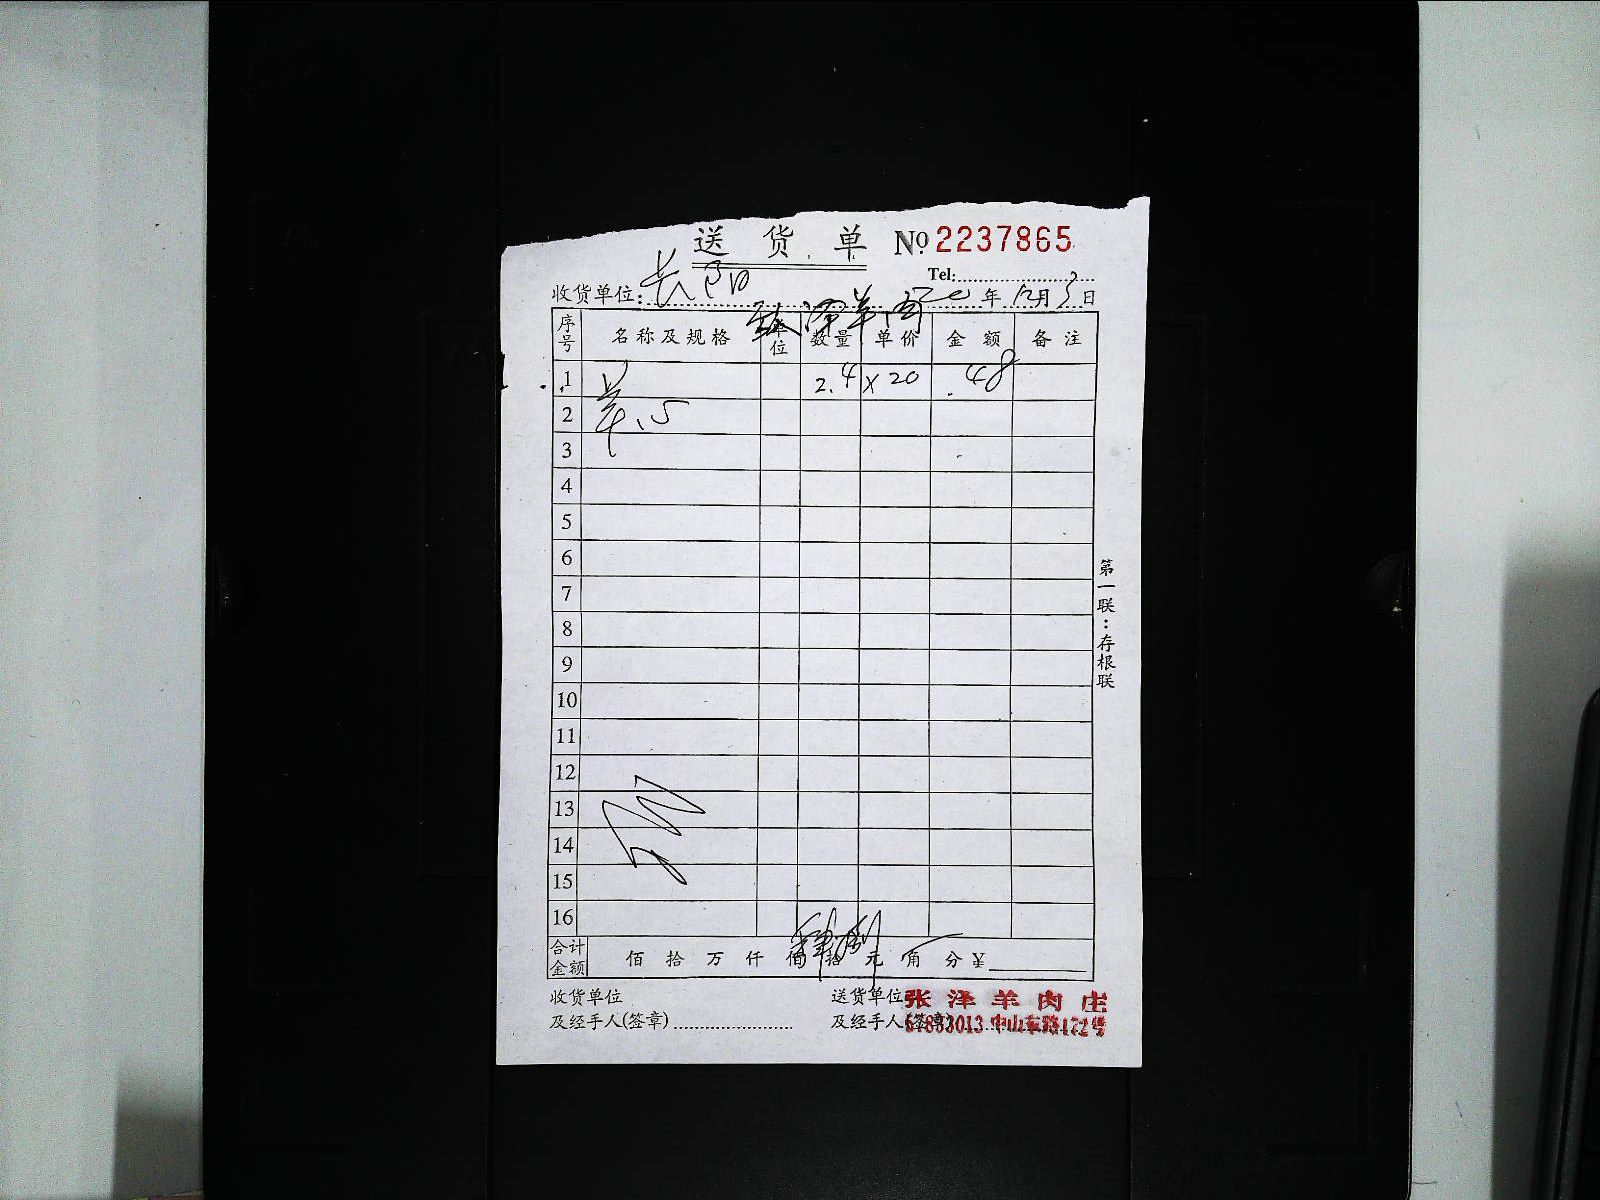 送货单 № 2237865
Tel:
收货单位: 长阳 20年12月3日
张泽羊肉
序号 名称及规格 单位 数量 单价 金额 备注
1 羊 2.4 × 20 48
2
3
4
5
6
7
8
9
10
11
12
13
14
15
16
合计金额 佰拾万仟佰拾元角分¥
肆捌
第一联：存根联
收货单位 送货单位 张泽羊肉庄
及经手人(签章) 及经手人(签章) 中山东路172号